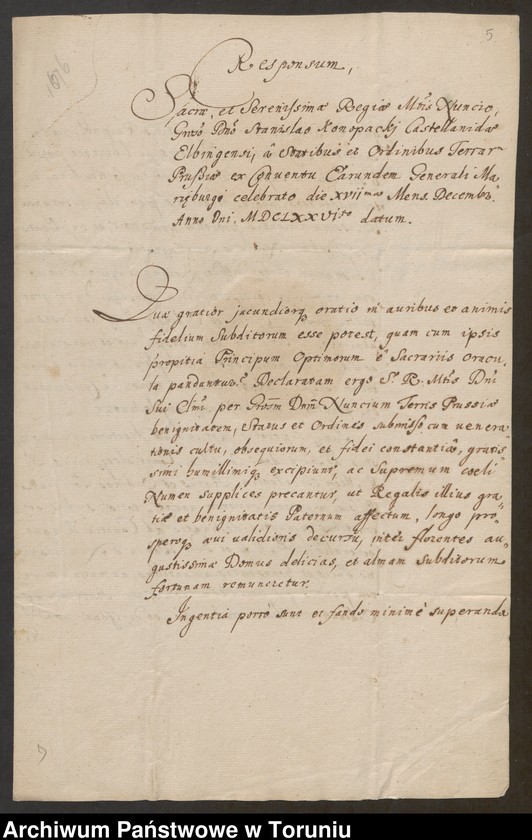 5
1676
Responsum,
Sacræ, et Serenissimæ Regiæ Mtis Nuncio,
Gnoso Dno Stanislao Konopackj Castellanidæ
Elbingensi, â Statibus et Ordinibus Terrar
Prussiæ ex Conventu Earundem Generali Ma
ryburgi celebrato die XVIImæ Mens. Decembr
Anno Dni. MDCLXXVIto datum.
Quæ gratior jucundiorq oratio in auribus et animis
fidelium Subditorum esse potest, quam cum ipsis
propitia Principum Optimorum è Sacrariis oracu-
la panduntur? Declaratam ergo S. R. Mtis Dni
Sui Clmi per Gnosm Dnm Nuncium Terris Prussiæ
benignitatem, Status et Ordines submisso cum venera
tionis cultu, obsequiorum, et fidei constantiâ, gratis
simi humillimiq excipiunt, ac Supremum coeli
Numen supplices precantur, ut Regalis illius gra
tiæ et benignitatis Paternum affectum, longo pro=
speroq ævi validioris decursu, inter florentes au=
gustissimæ Domus delicias, et almam Subditorum
fortunam remuneretur.
Ingentia porro sunt et fando minimè superanda
Archiwum Państwowe w Toruniu